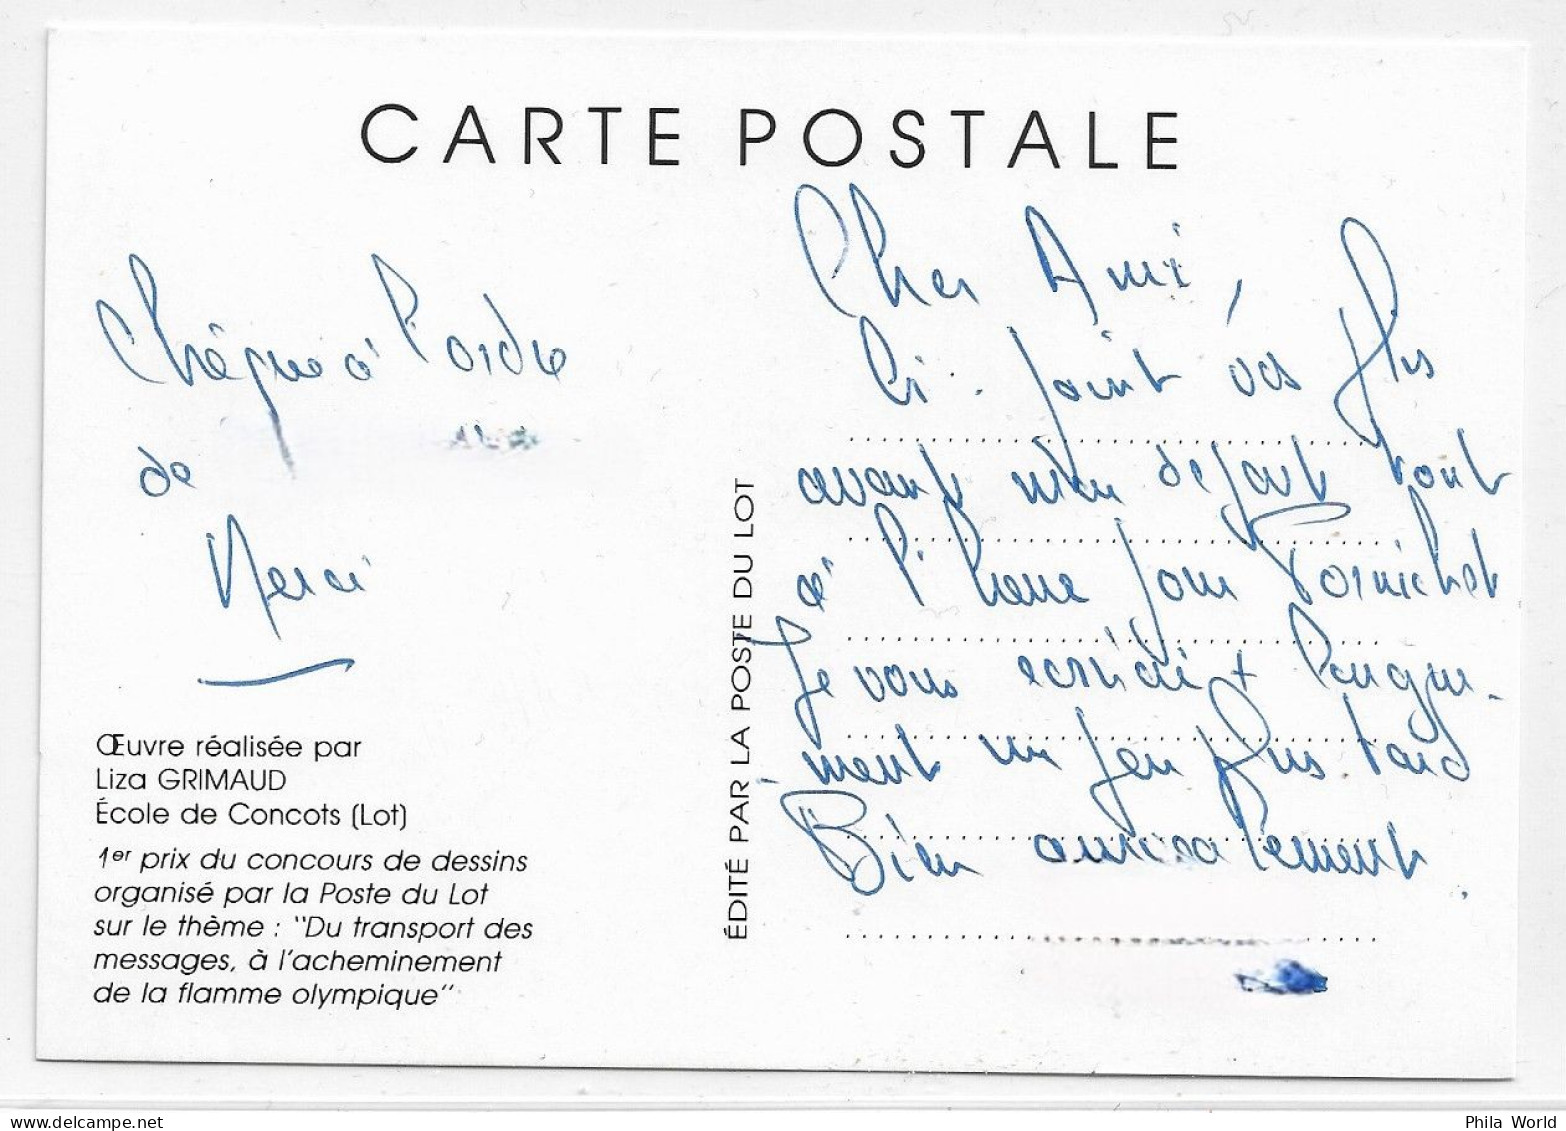 CARTE POSTALE
Chèque à l'ordre
de
Merci
Œuvre réalisée par
Liza GRIMAUD
École de Concots (Lot)
1er prix du concours de dessins
organisé par la Poste du Lot
sur le thème : "Du transport des
messages, à l'acheminement
de la flamme olympique"
ÉDITÉ PAR LA POSTE DU LOT
Cher Ami,
Ci-joint vos plis
avant mon départ tout
à l'heure pour Pornichet
Je vous écrirai + longue-
ment un peu plus tard
Bien amicalement.
Phila World